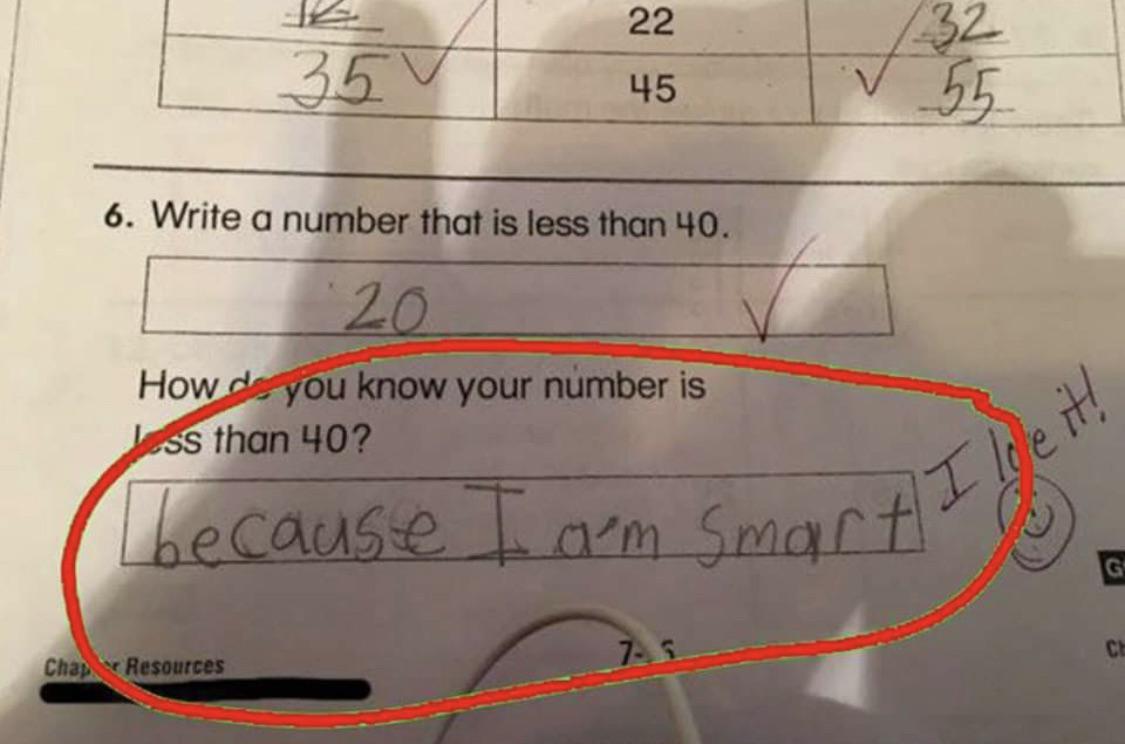 22 32
35 45 55
6. Write a number that is less than 40.
20
How do you know your number is
less than 40?
because I am smart
I love it!
Chapter Resources